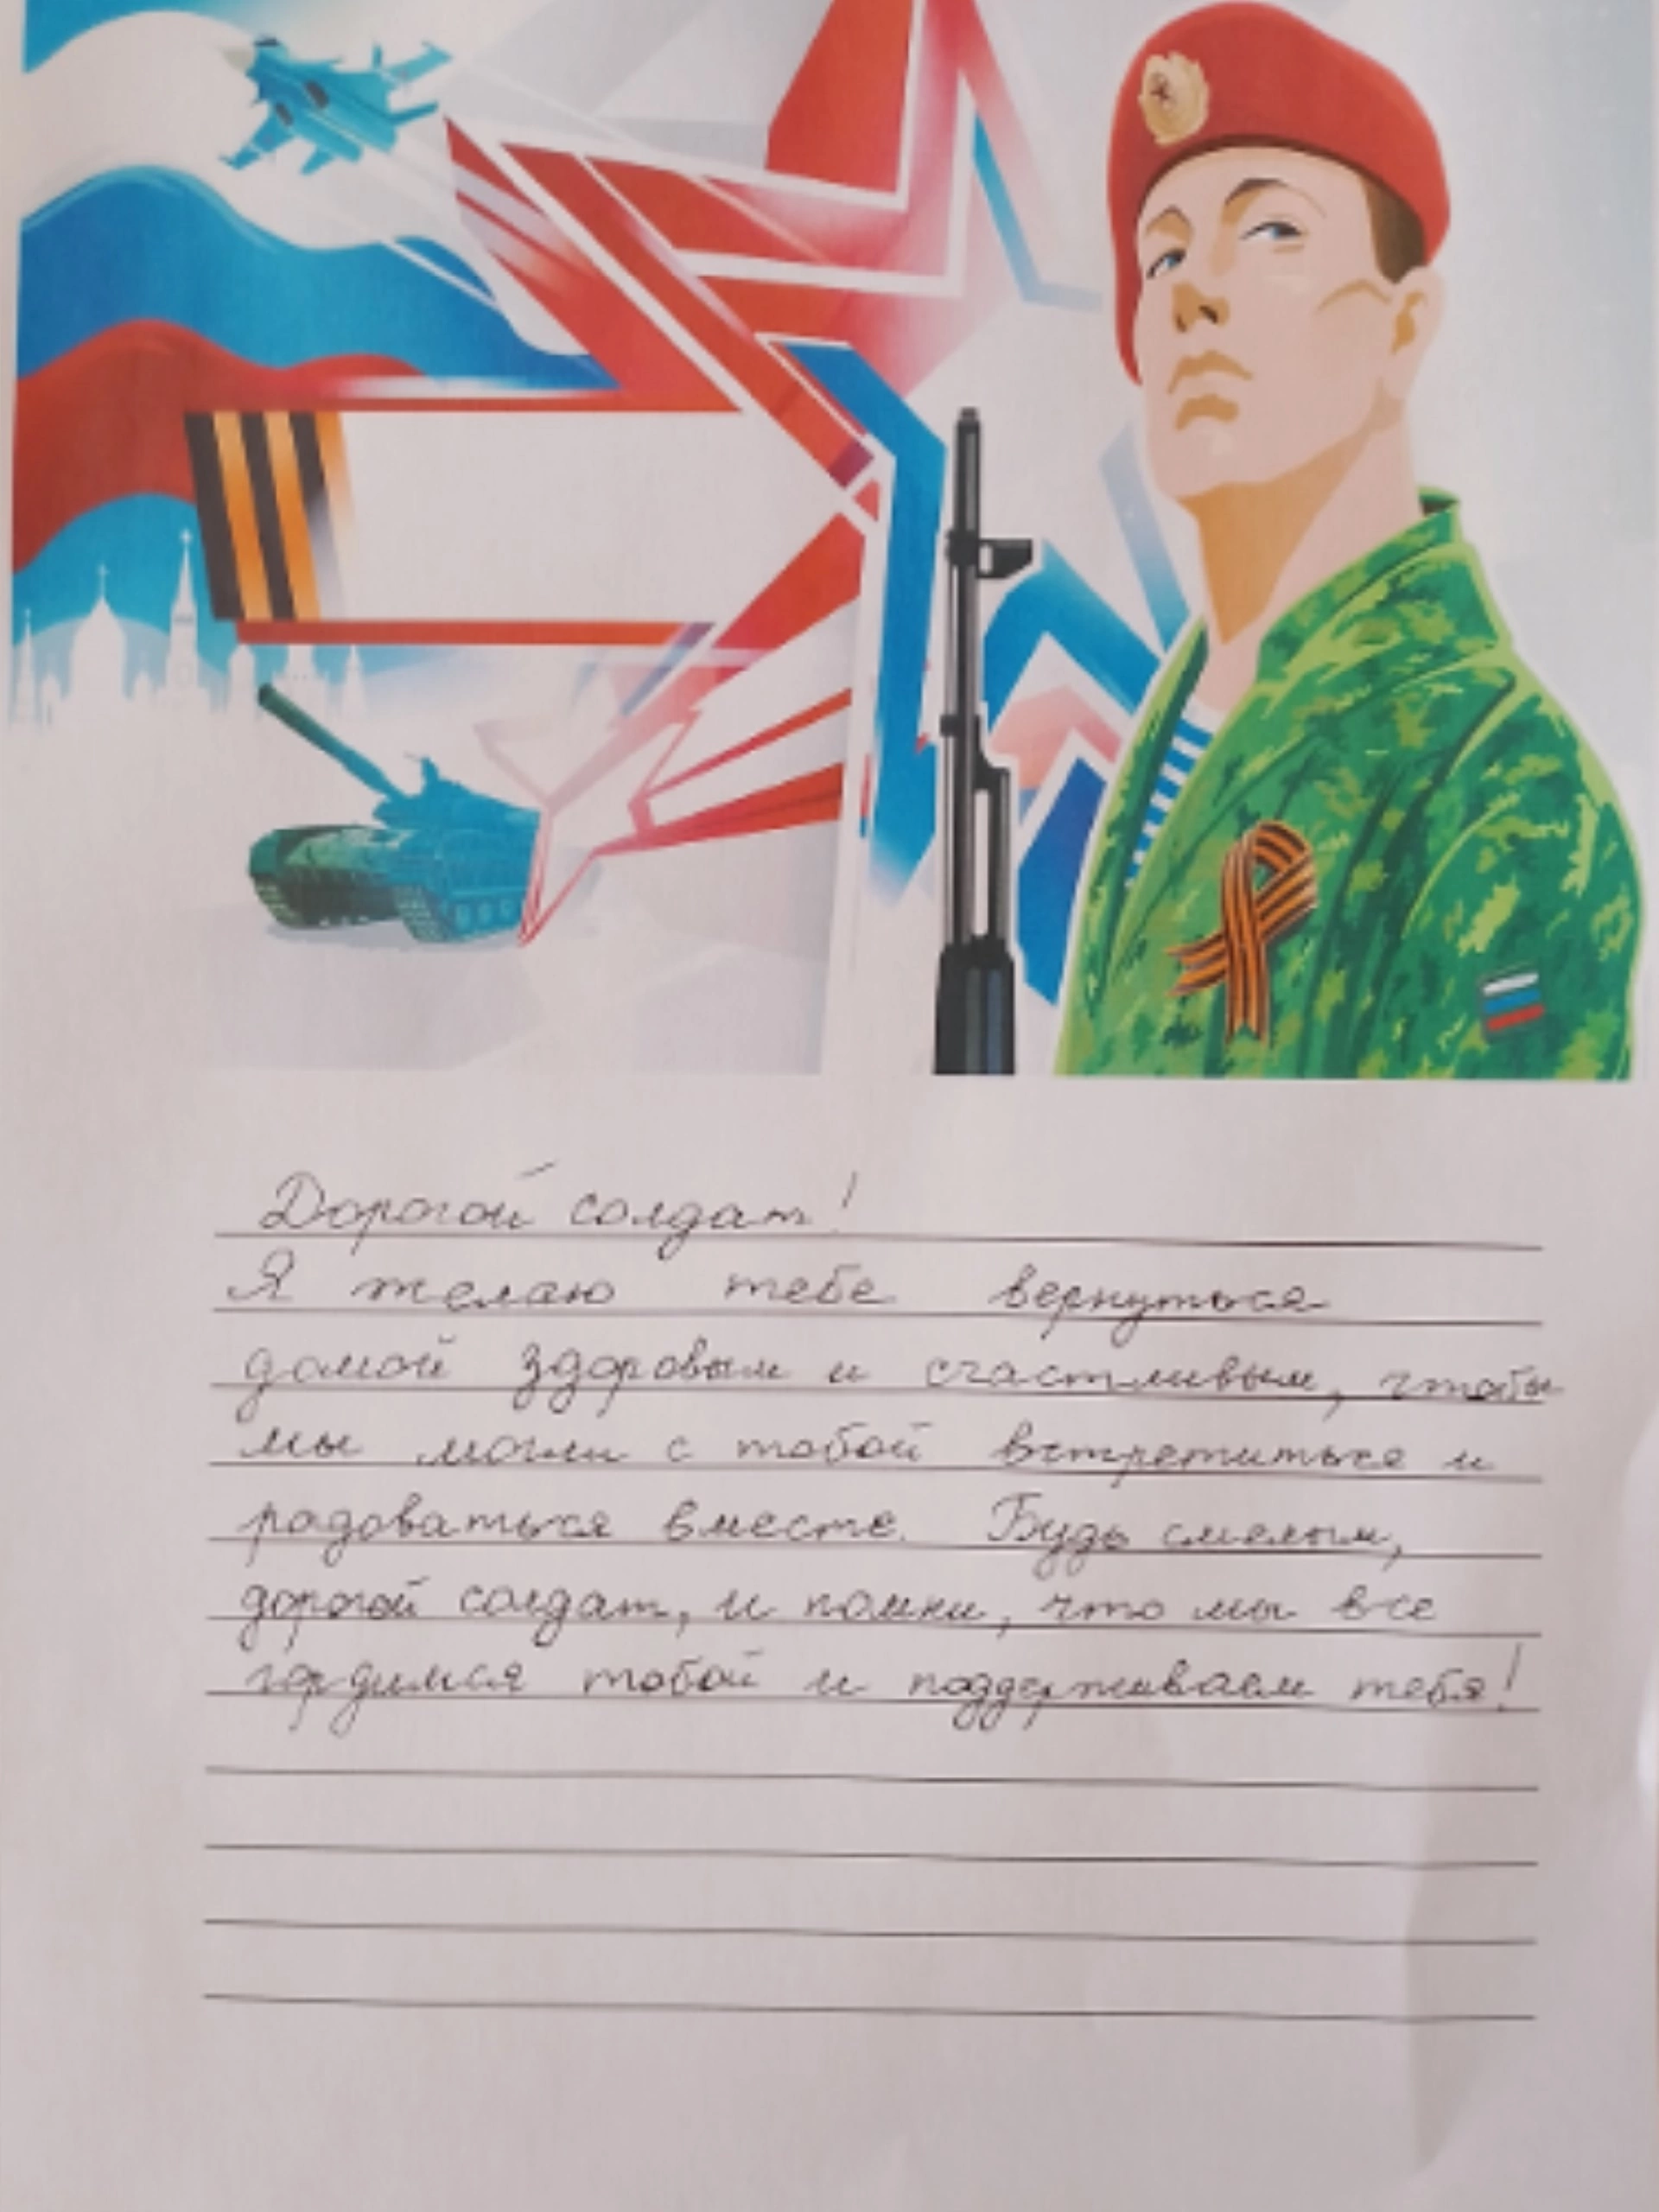 Дорогой солдат!
Я желаю тебе вернуться
домой здоровым и счастливым, чтобы
мы могли с тобой встретиться и
радоваться вместе. Будь смелым,
дорогой солдат, и помни, что мы все
гордимся тобой и поддерживаем тебя!